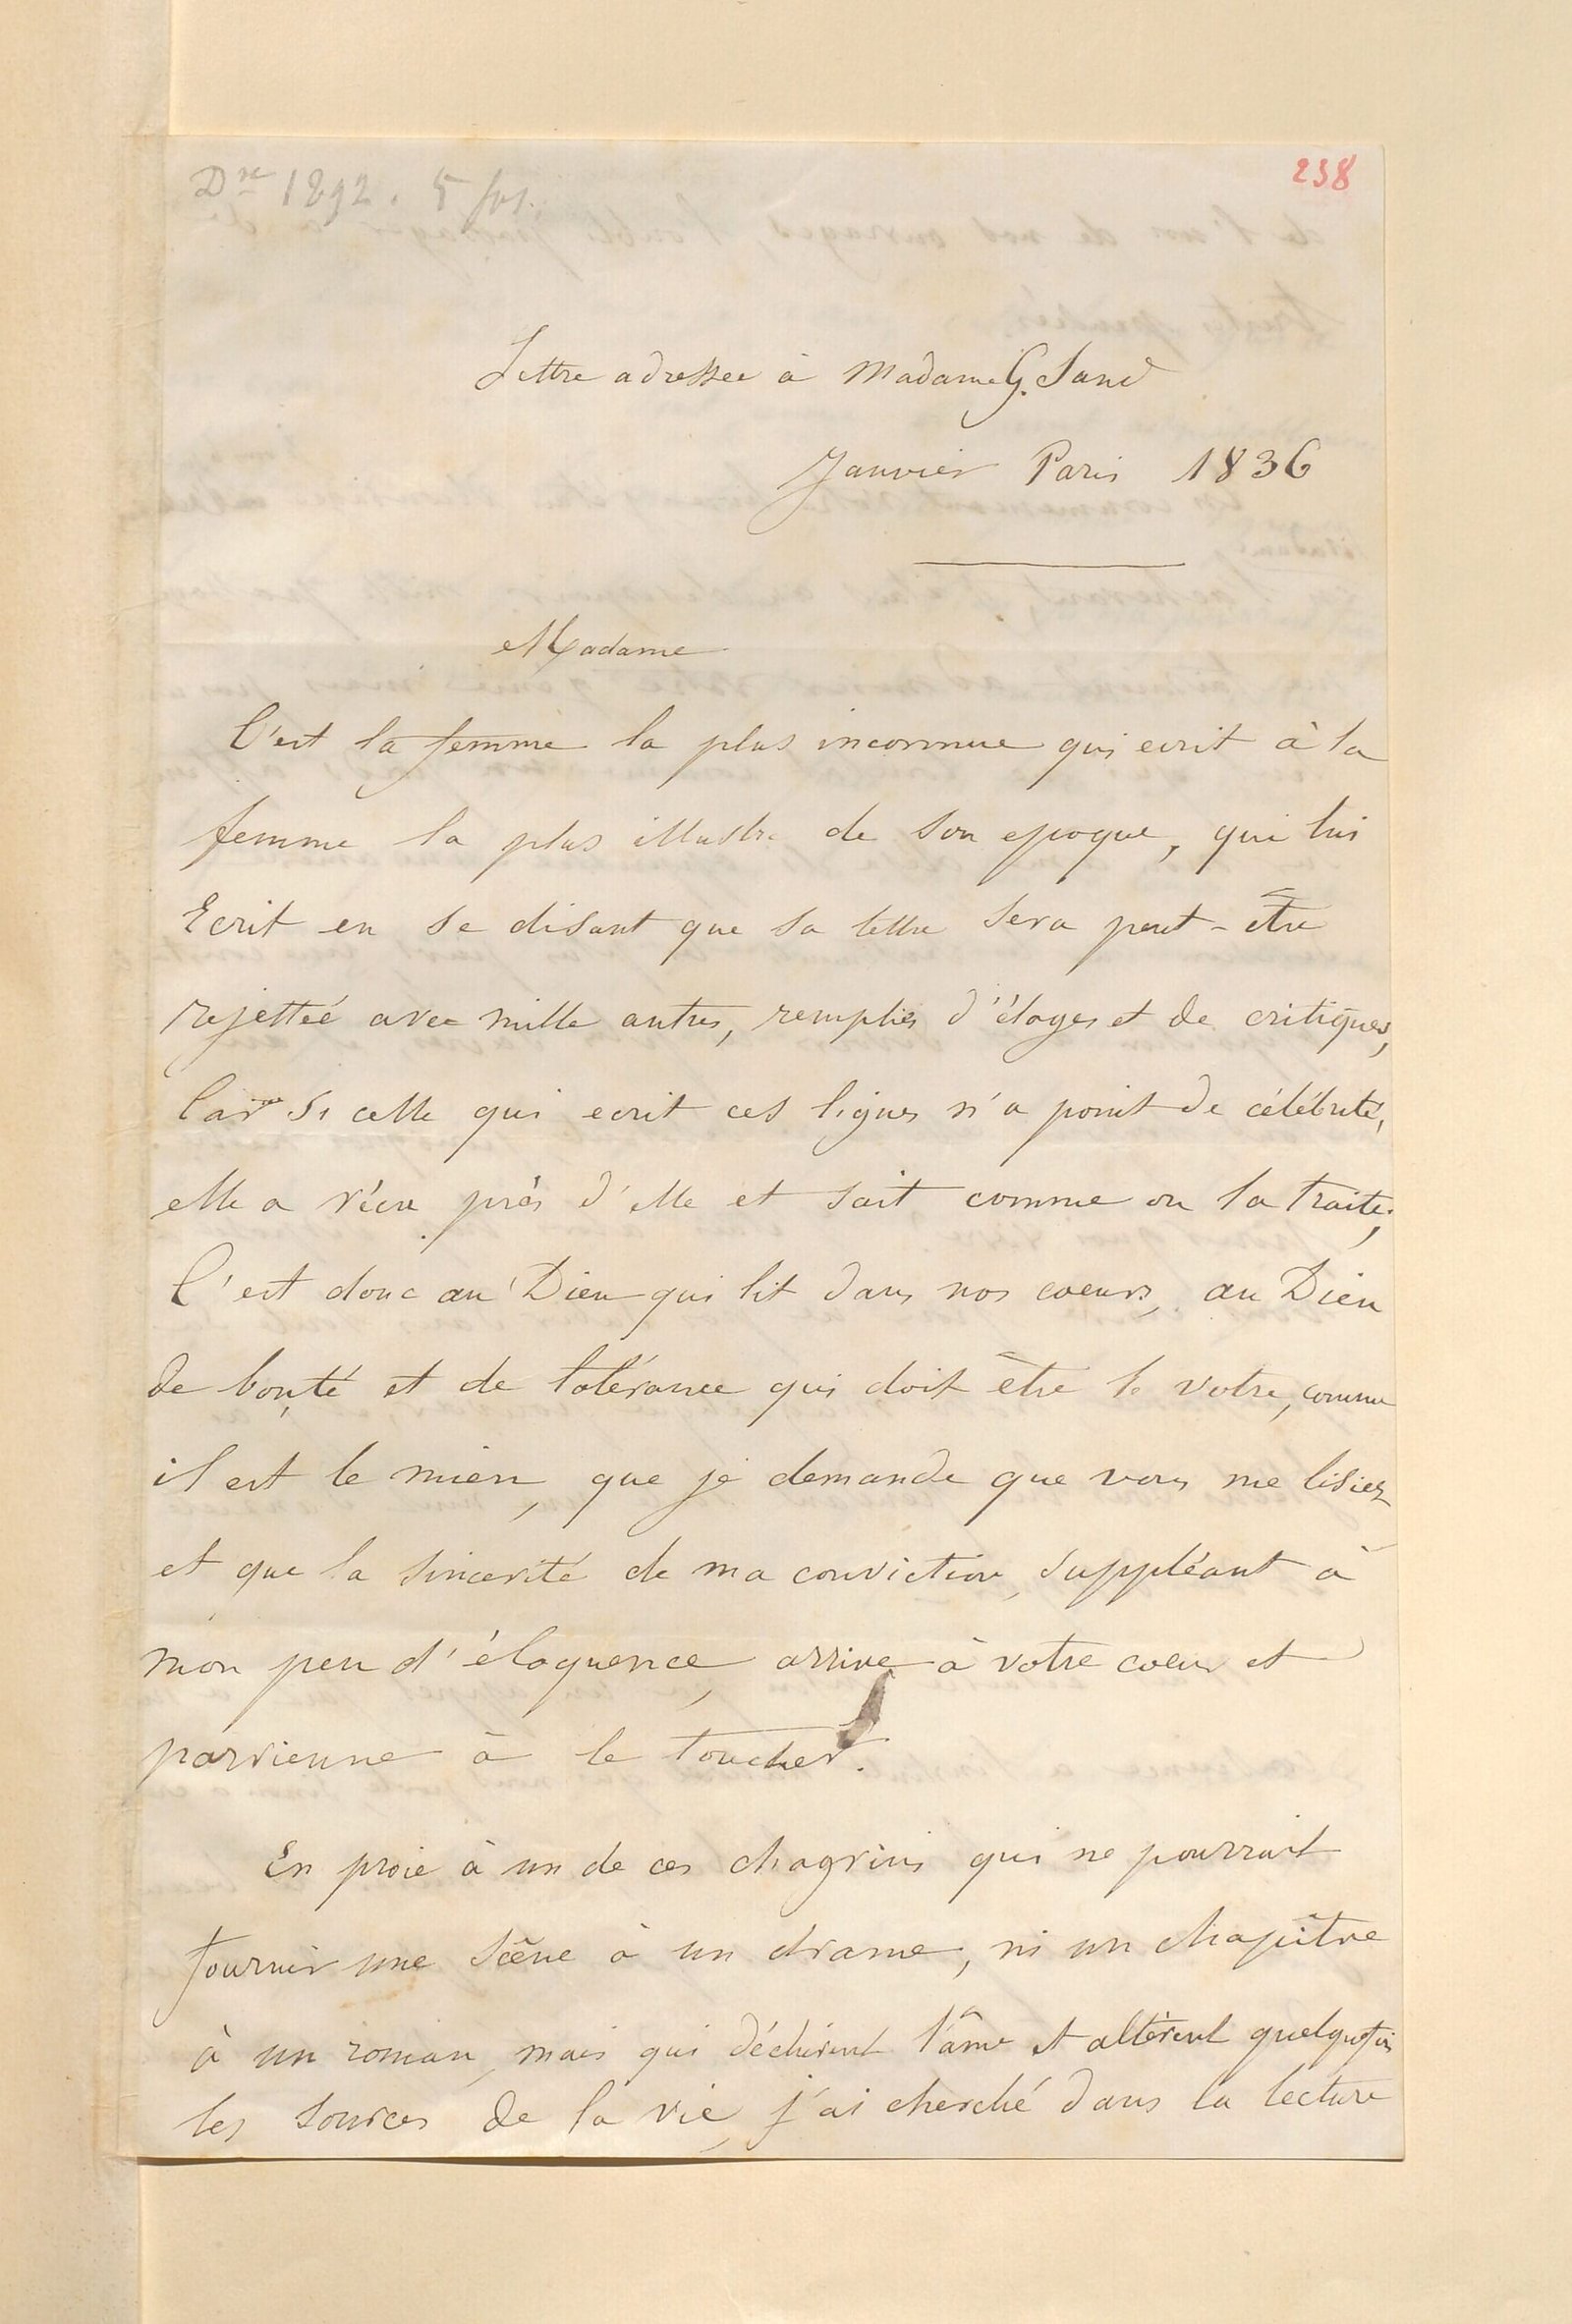 Dre 1892. 5 fvs.
238
Lettre adressee à Madame G. Sand
Janvier Paris 1836
Madame
C'est la femme la plus inconnue qui ecrit à la
femme la plus illustre de son epoque, qui lui
Ecrit en se disant que sa lettre sera peut-être
rejettée avec mille autres, remplies d'éloges et de critiques,
Car si celle qui ecrit ces lignes n'a point de célébrité,
elle a vécu près d'elle et sait comme on la traite;
C'est donc au Dieu qui lit dans nos coeurs, au Dieu
de bonté et de tolérance qui doit être le votre, comme
il est le mien, que je demande que vous me lisiez
et que la sincerité de ma conviction, suppléant à
mon peu d'éloquence, arrive à votre coeur et
parvienne à le toucher.
En proie à un de ces chagrins qui ne pourrait
fournir une scêne à un drame, ni un chapître
à un roman, mais qui déchirent l'âme et altèrent quelquefois
les sources de la vie, j'ai cherché dans la lecture